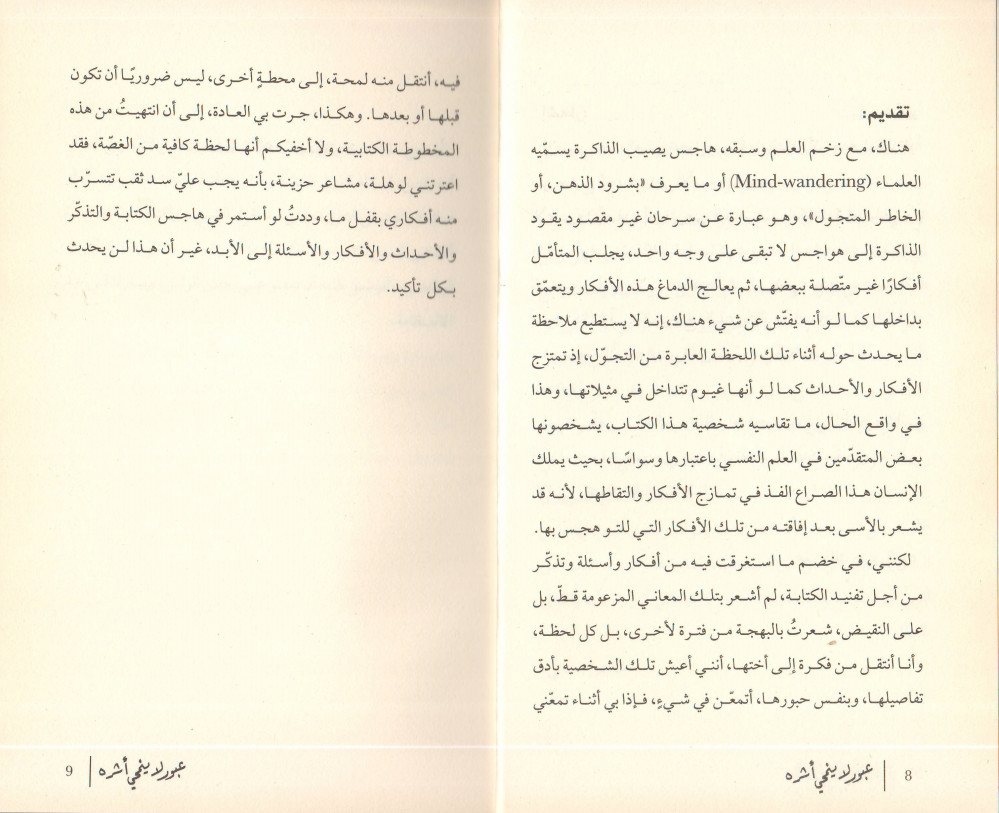 تقديم:
هناك، مع زخم العلم وسبقه، هاجس يصيب الذاكرة يسمّيه
العلماء (Mind-wandering) أو ما يعرف «بشرود الذهن، أو
الخاطر المتجول»، وهو عبارة عن سرحان غير مقصود يقود
الذاكرة إلى هواجس لا تبقى على وجه واحد، يجلب المتأمّل
أفكارًا غير متّصلة ببعضها، ثم يعالج الدماغ هذه الأفكار ويتعمّق
بداخلها كما لو أنه يفتّش عن شيء هناك، إنه لا يستطيع ملاحظة
ما يحدث حوله أثناء تلك اللحظة العابرة من التجوّل، إذ تمتزج
الأفكار والأحداث كما لو أنها غيوم تتداخل في مثيلاتها، وهذا
في واقع الحال، ما تقاسيه شخصية هذا الكتاب، يشخصونها
بعض المتقدّمين في العلم النفسي باعتبارها وسواسًا، بحيث يملك
الإنسان هذا الصراع الفذ في تمازج الأفكار والتقاطها، لأنه قد
يشعر بالأسى بعد إفاقته من تلك الأفكار التي للتو هجس بها.
لكنني، في خضم ما استغرقت فيه من أفكار وأسئلة وتذكّر
من أجل تفنيد الكتابة، لم أشعر بتلك المعاني المزعومة قطّ، بل
على النقيض، شعرتُ بالبهجة من فترة لأخرى، بل كل لحظة،
وأنا أنتقل من فكرة إلى أختها، أنني أعيش تلك الشخصية بأدق
تفاصيلها، وبنفس حبورها، أتمعّن في شيءٍ، فإذا بي أثناء تمعّني
8 | عبور لا ينمحي أثره
فيه، أنتقل منه لمحة، إلى محطةٍ أخرى، ليس ضروريًا أن تكون
قبلها أو بعدها. وهكذا، جرت بي العادة، إلى أن انتهيتُ من هذه
المخطوطة الكتابية، ولا أخفيكم أنها لحظة كافية من الغصّة، فقد
اعترتني لوهلة، مشاعر حزينة، بأنه يجب عليّ سد ثقب تتسرّب
منه أفكاري بقفل ما، وددتُ لو أستمر في هاجس الكتابة والتذكّر
والأحداث والأفكار والأسئلة إلى الأبد، غير أن هذا لن يحدث
بكل تأكيد.
عبور لا ينمحي أثره | 9